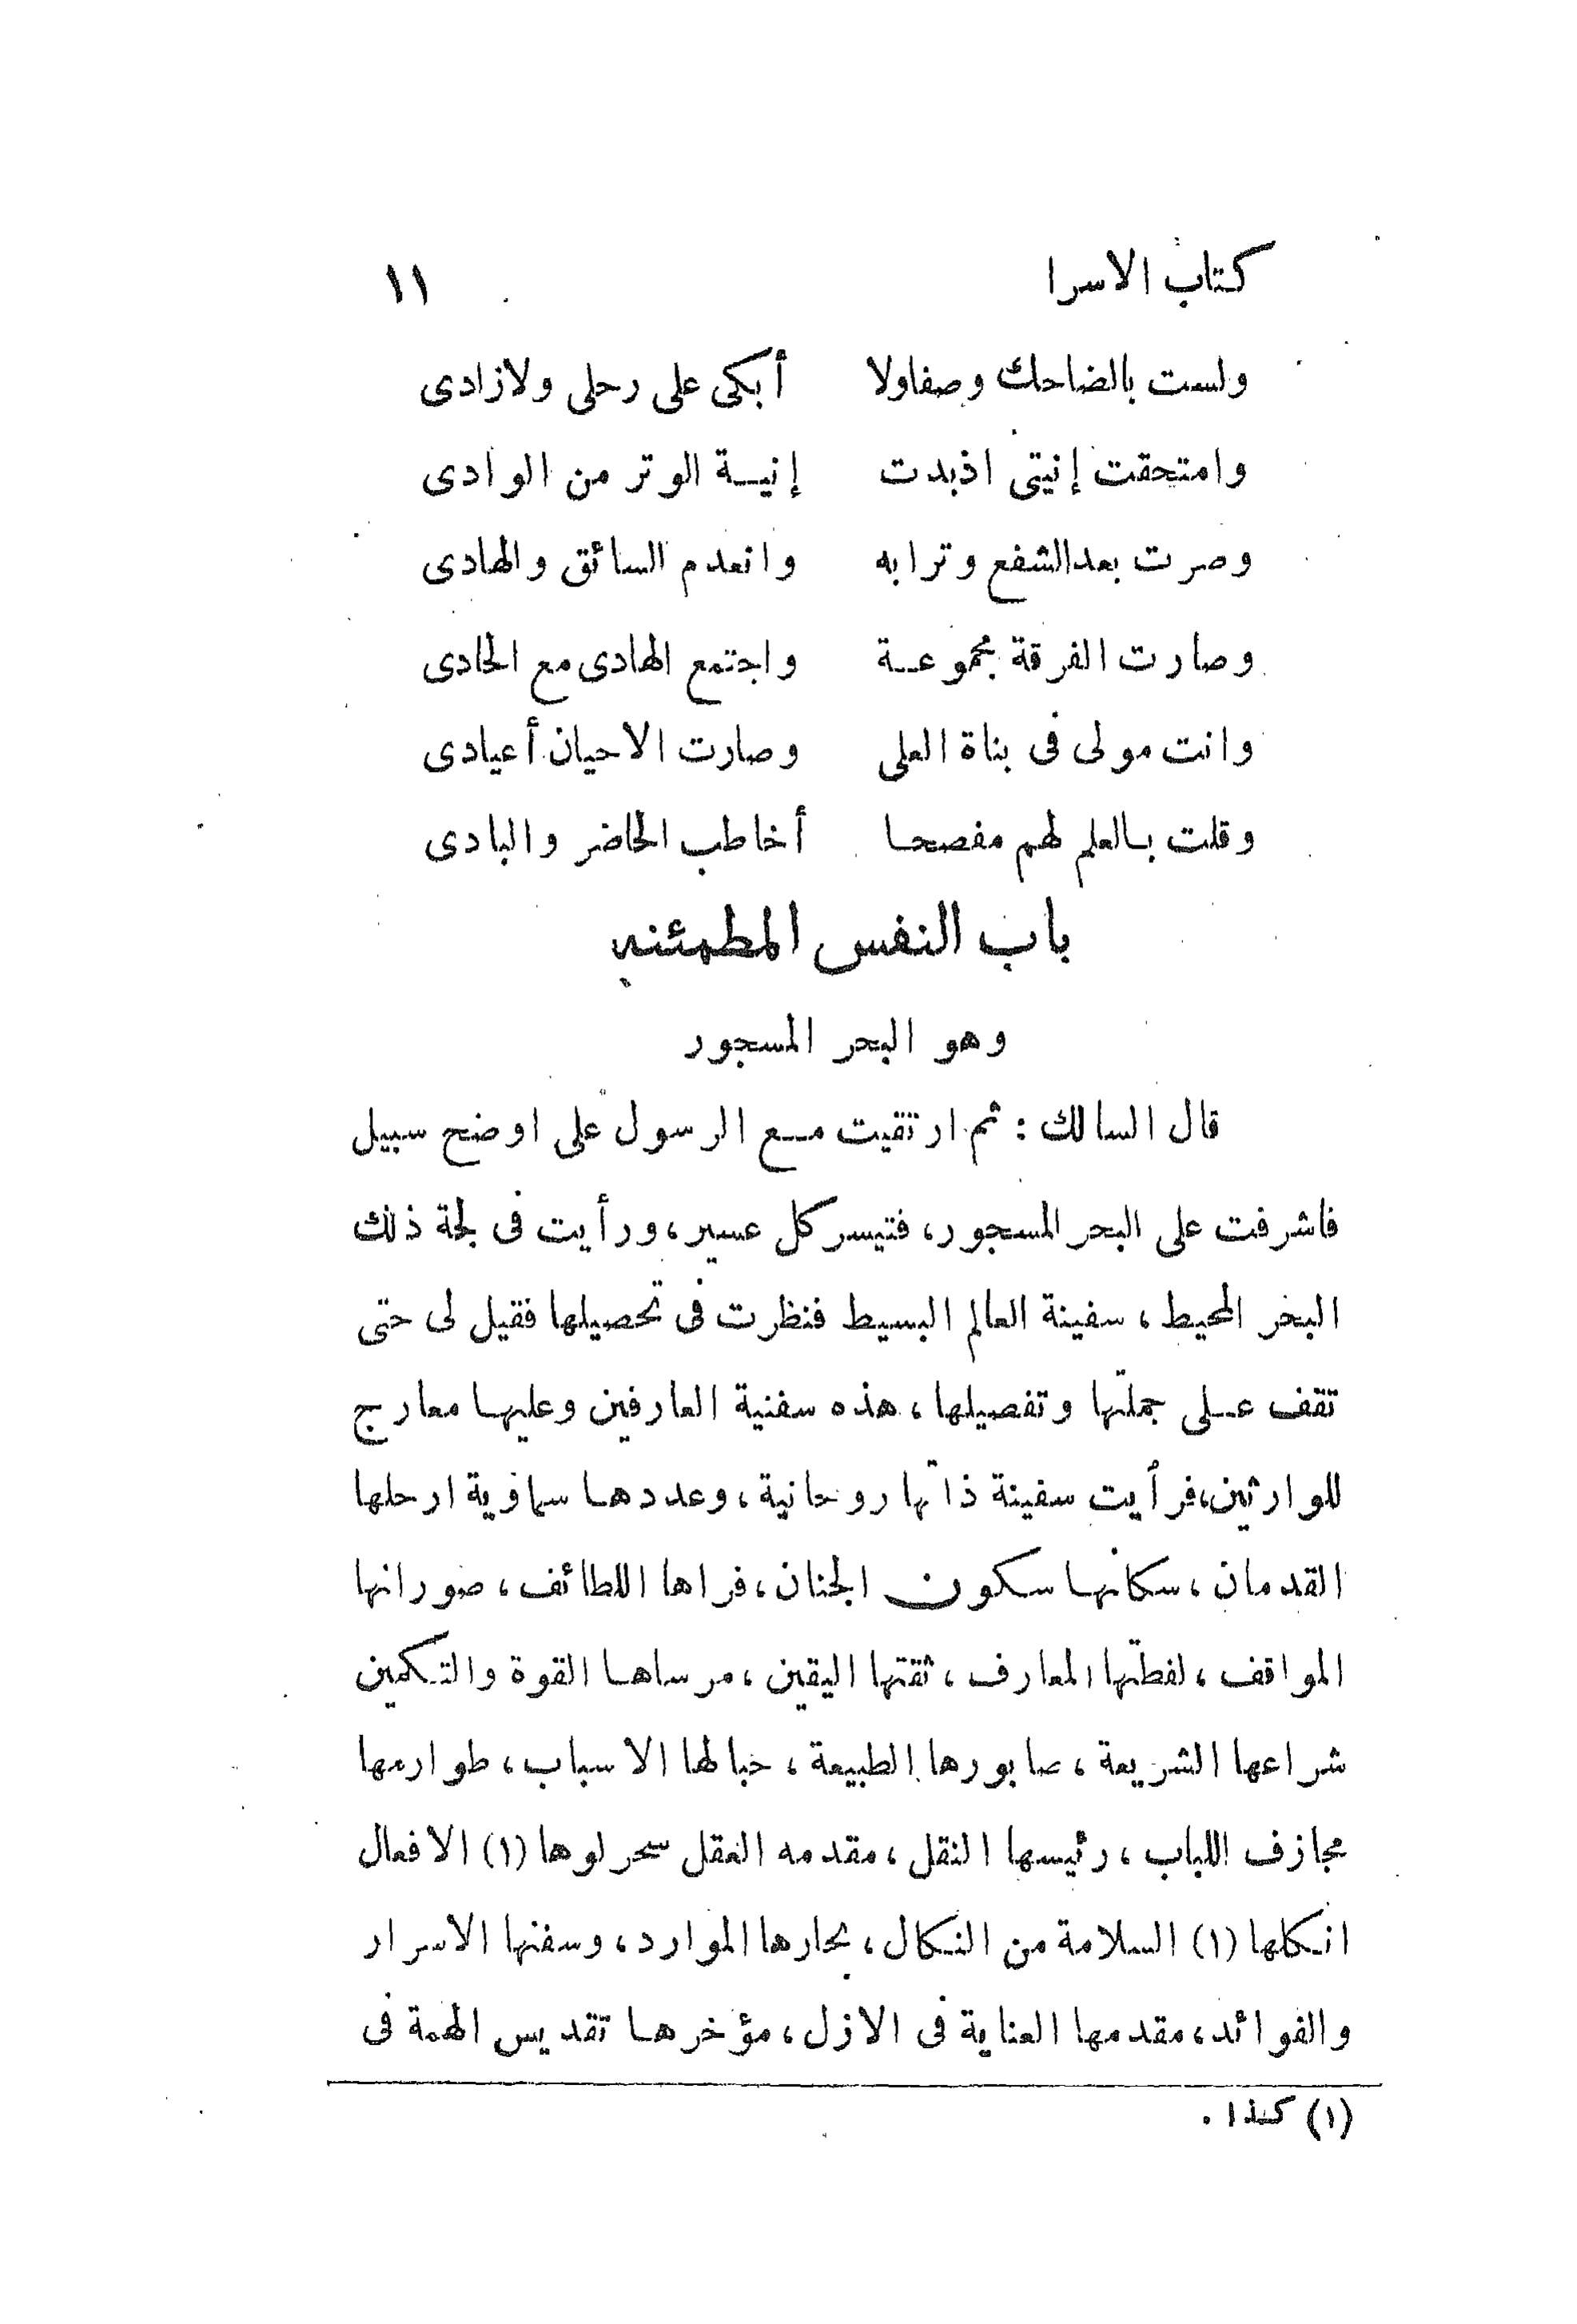 كتاب الاسرا ١١
ولست بالضاحك وصفاولا أبكى على رحلى ولازادى
وامتحقت إنيتى اذبدت إنيـة الوتر من الوادى
وصرت بعدالشفع وترا به وانعدم السائق والهادى
وصارت الفرقة مجموعـة واجتمع الهادى مع الحادى
وانت مولى فى بناة العلى وصارت الاحيان أعيادى
وقلت بالعلم لهم مفصحا أخاطب الحاضر والبادى
باب النفس المطمئنه
وهو البحر المسجور
قال السالك : ثم ارتقيت مـع الرسول على اوضح سبيل
فاشرفت على البحر المسجور، فتيسر كل عسير، ورأيت فى لجة ذلك
البحر المحيط، سفينة العالم البسيط فنظرت فى تحصيلها فقيل لى حتى
تقف عـلى جملتها وتفصيلها، هذه سفنية العارفين وعليها معارج
للوارثين، فرأيت سفينة ذاتها روحانية، وعددها سماوية ارحلها
القدمان، سكانها سكون الجنان، فراها اللطائف، صورانها
المواقف، لفظتها المعارف، ثقتها اليقين، مرساها القوة والتكمين
شراعها الشريعة، صابورها الطبيعة، حبالها الاسباب، طوارمها
مجازف اللباب، رئيسها النقل، مقدمه العقل سحرلوها (١) الافعال
انكلها (١) السلامة من النكال، بحارها الموارد، وسفنها الاسرار
والفوائد، مقدمها العناية فى الازل، مؤخرها تقديس الهمة فى
(١) كـذا .